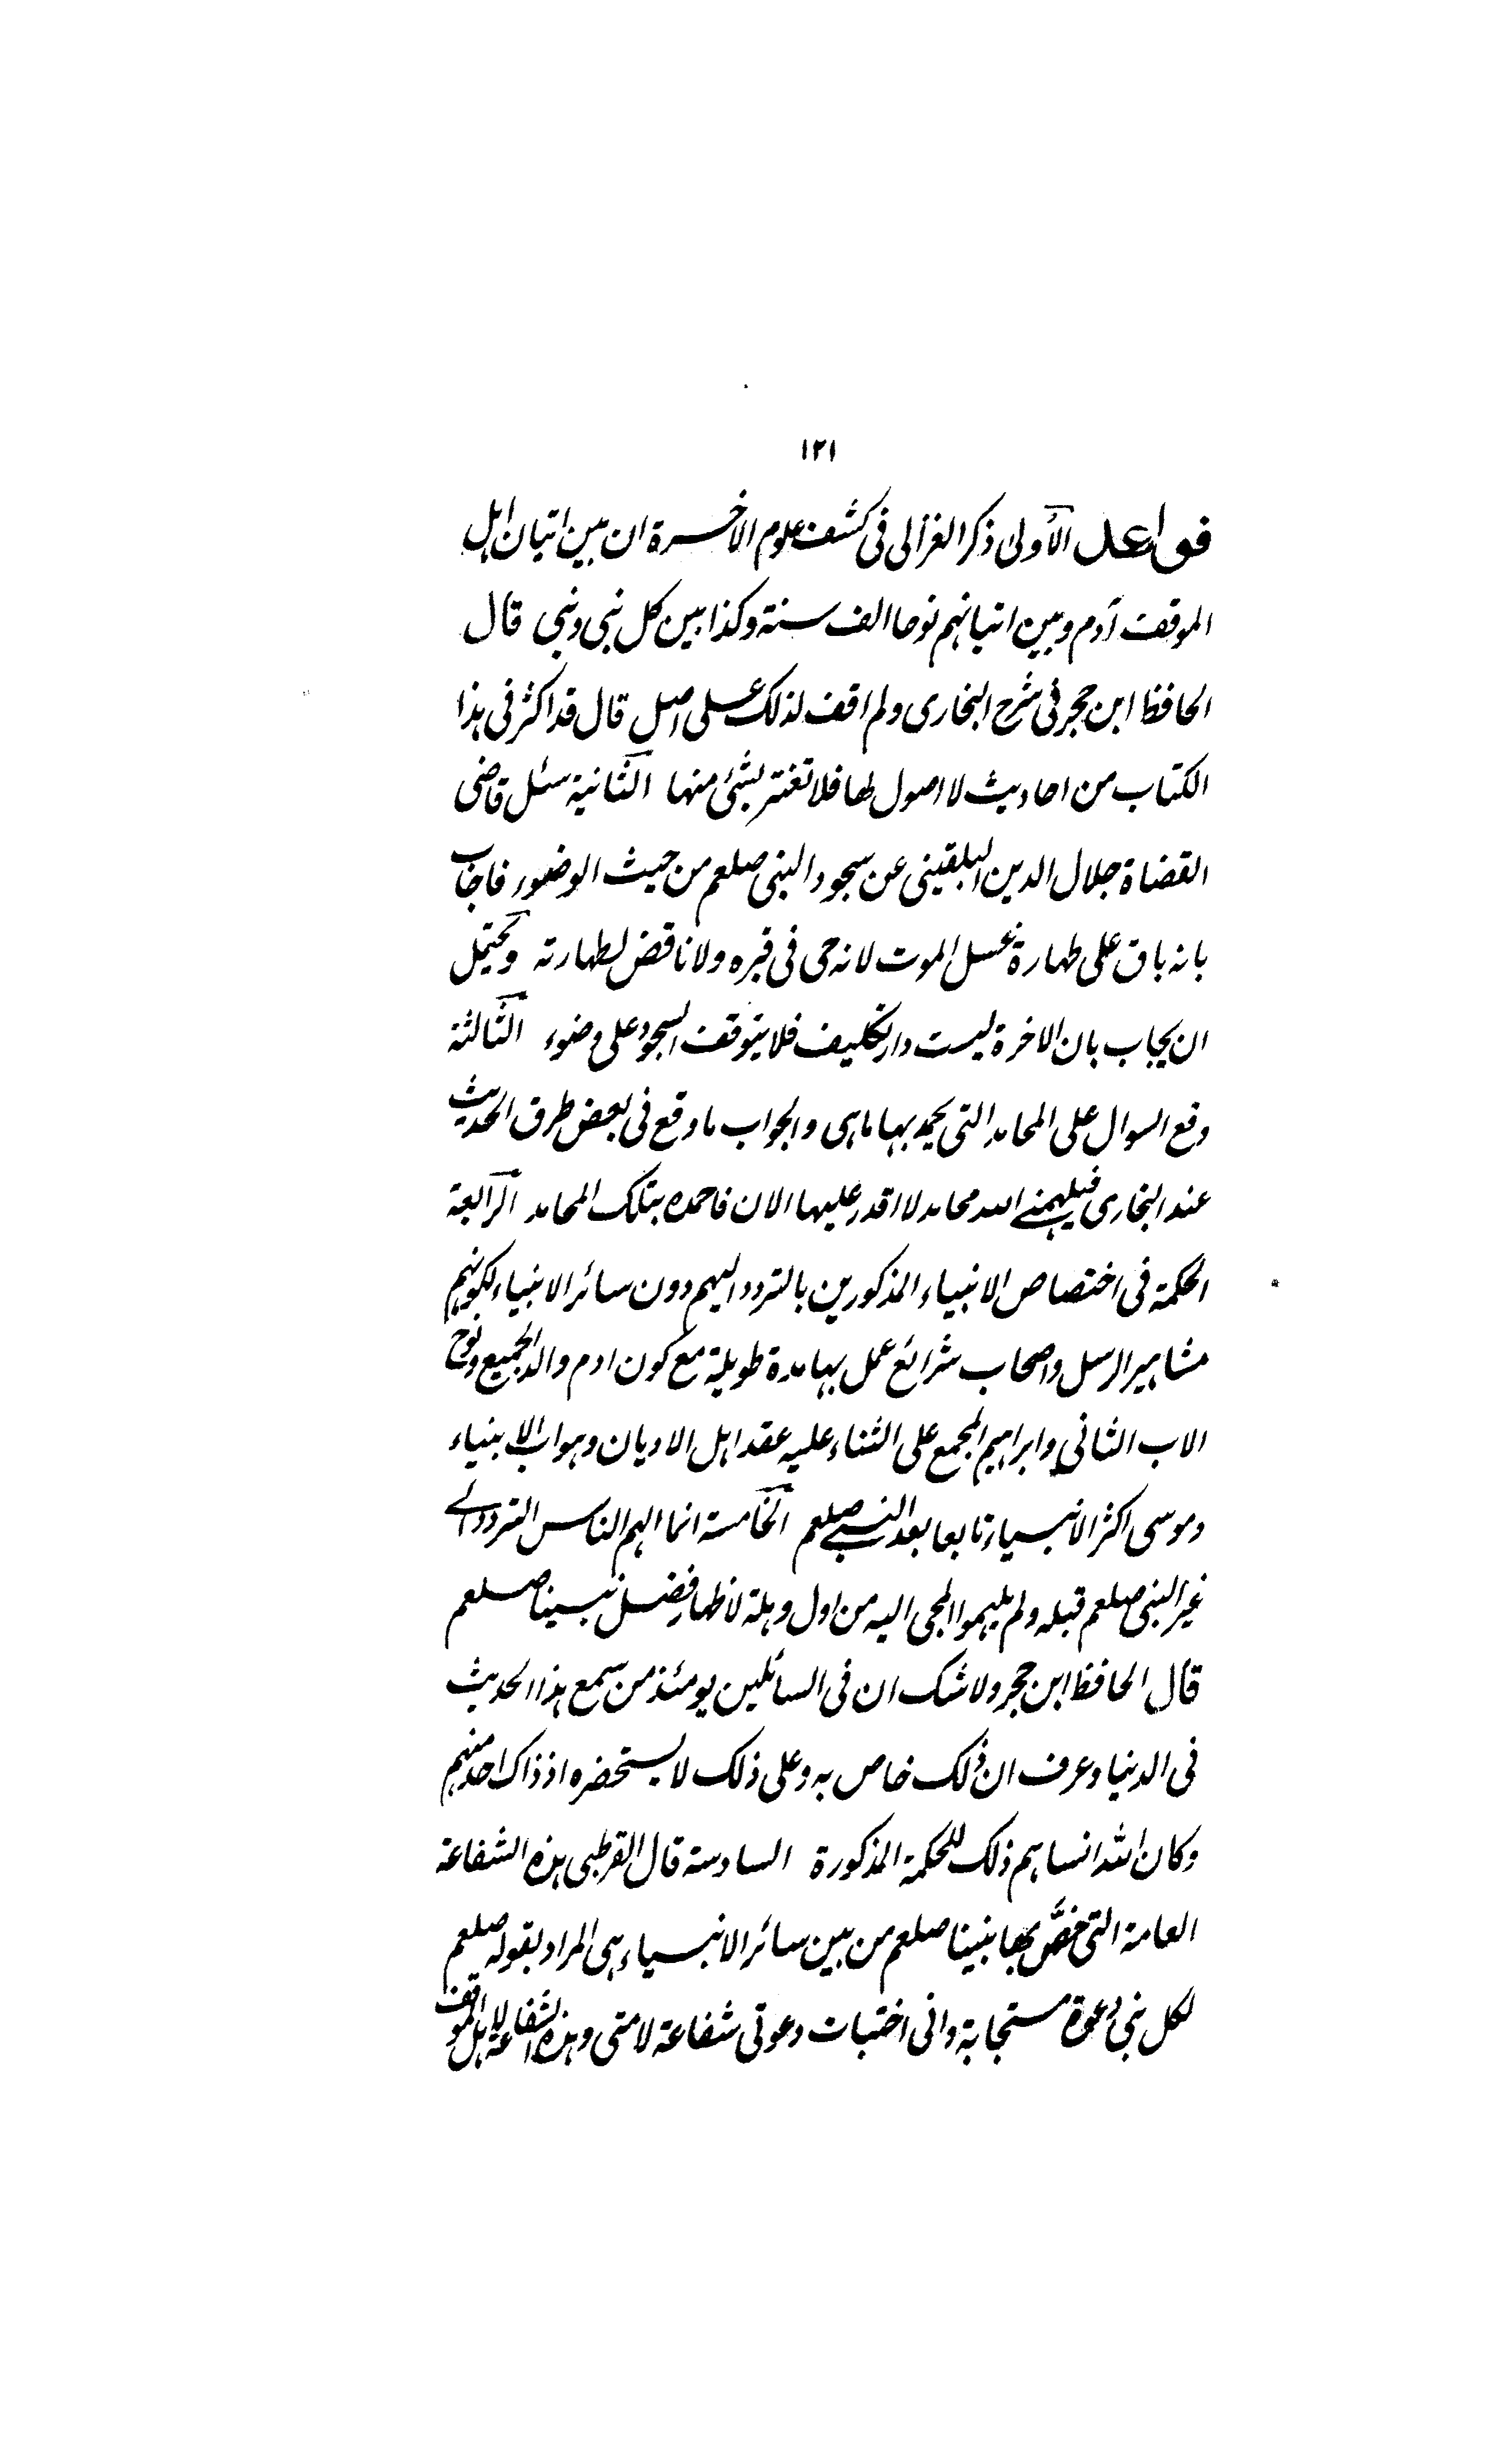 ١٢١
فواعد الأولى ذكر الغزالى فى كشف علوم الاخرة ان بين اتيان اهل
الموقف آدم وبين اتيانهم نوحا الف سنة وكذا بين كل نبى ونبى قال
الحافظ ابن حجر فى شرح البخارى ولم اقف لذلك على اصل قال قد اكثر فى هذا
الكتاب من احاديث لا اصول لها فلا تغتر بشئ منها الثانية سئل قاضى
القضاة جلال الدين البلقينى عن سجود النبى صلعم من حيث الوضوء فاجاب
بانه باق على طهارة غسل الموت لانه حى فى قبره ولا ناقض لطهارته ويحتمل
ان يجاب بان الاخرة ليست دار تكليف فلا يتوقف السجود على وضوء الثالثة
وقع السوال على المحامد التى يحمد بها ما هى والجواب ما وقع فى بعض طرق الحديث
عند البخارى فيلهمنى الله محامد لا اقدر عليها الان فاحمده بتلك المحامد الرابعة
الحكمة فى اختصاص الانبياء المذكورين بالتردد اليهم دون سائر الانبياء لكونهم
مشاهير الرسل واصحاب شرائع عمل بها مدة طويلة مع كون ادم والد الجميع ونوح
الاب الثانى وابراهيم المجمع على الثناء عليه عقد اهل الاديان وهو اب الانبياء
وموسى اكثر الانبياء تابعا بعد النبى صلعم الخامسة انما الهم الناس التردد الى
غير النبى صلعم قبله ولم يلهموا المجى اليه من اول وهلة لاظهار فضل نبينا صلعم
قال الحافظ ابن حجر ولا شك ان فى السائلين يومئذ من سمع هذا الحديث
فى الدنيا وعرف ان ذلك خاص به وعلى ذلك لا يستحضره اذ ذاك احد منهم
وكان الله انساهم ذلك للحكمة المذكورة السادسة قال القرطبى هذه الشفاعة
العامة التى خصَّ بها نبينا صلعم من بين سائر الانبياء هى المراد بقوله صلعم
لكل نبى دعوة مستجابة وانى اختبات دعوتى شفاعة لامتى وهذه الشفاعة لاهل الموقف